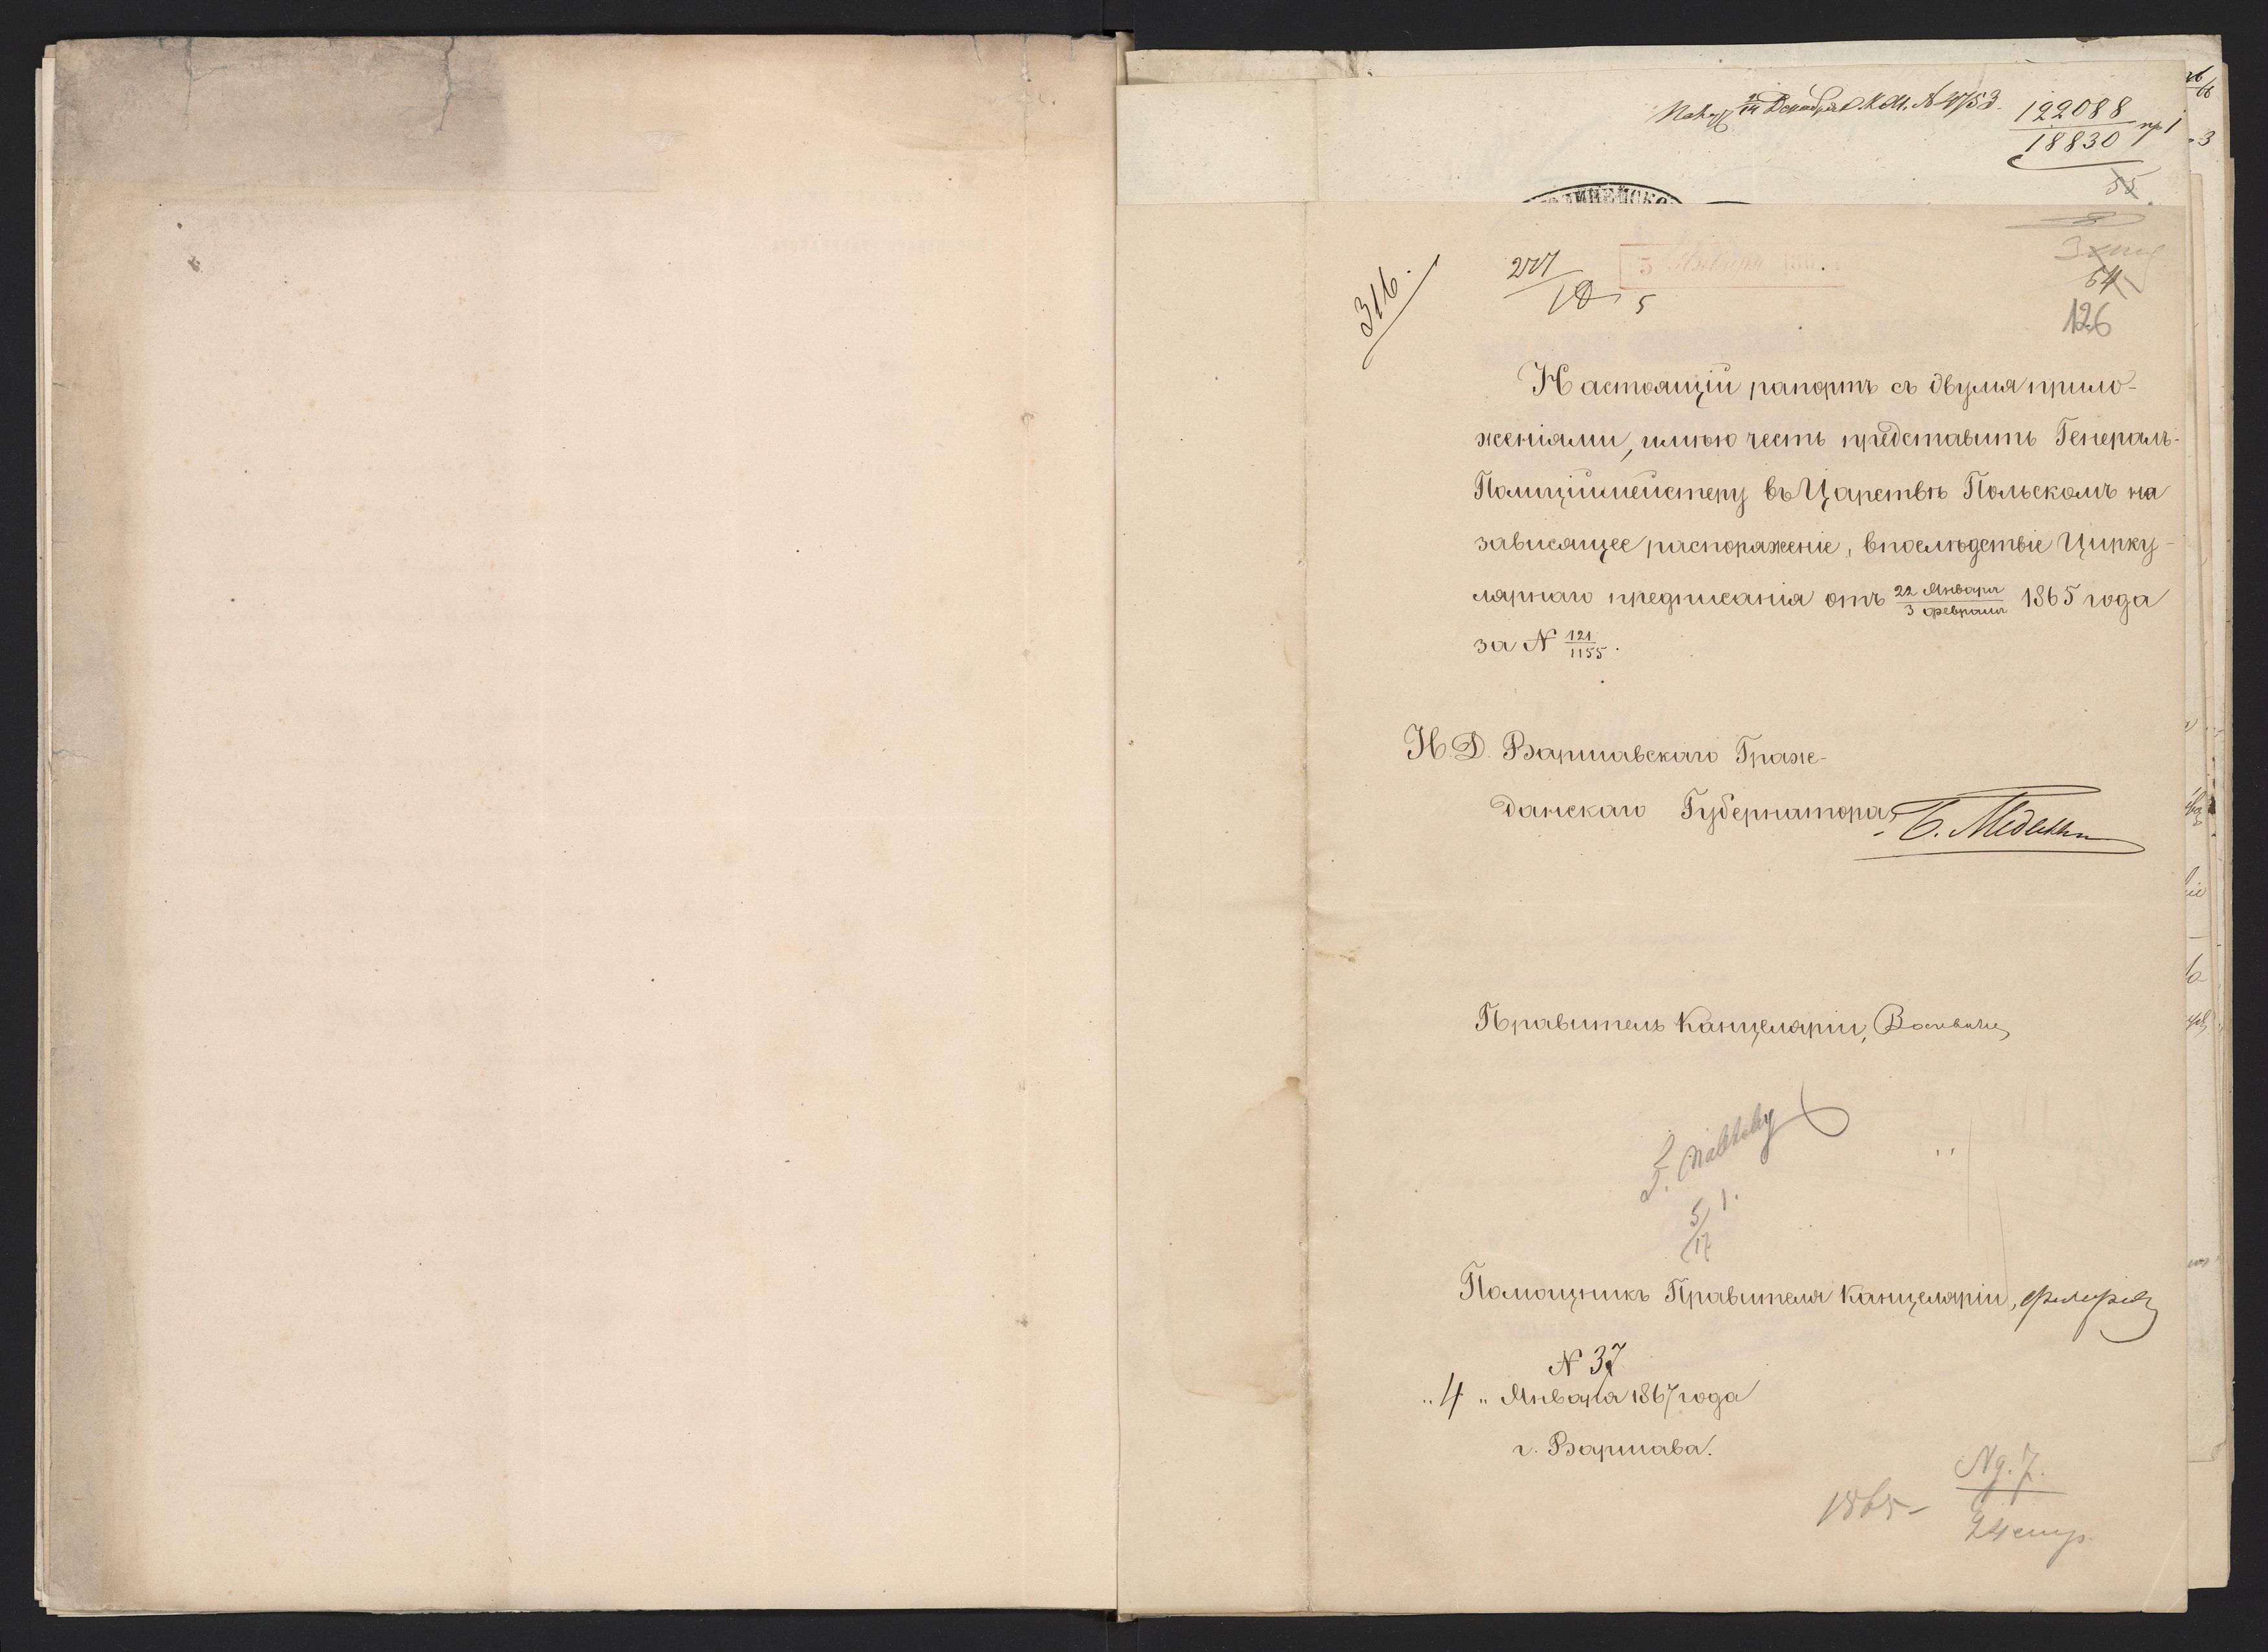 122088
18830 пр 1
55
316.
5
5
54
126
Настоящій рапортъ съ двумя прило-
женіями, имѣю честь представить Генералъ-
Полиціймейстеру въ Царствѣ Польскомъ на
зависящее распоряженіе, впослѣдствіе Цирку-
лярнаго предписанія отъ 22 Января / 3 февраля 1865 года
за № 121/1155.
И. Д. Варшавскаго Граж-
данскаго Губернатора,
Правитель Канцеляріи,
5/17 1.
Помощникъ Правителя Канцеляріи,
№ 37
"4" Января 1867 года
г. Варшава.
1865 -
24 стр.